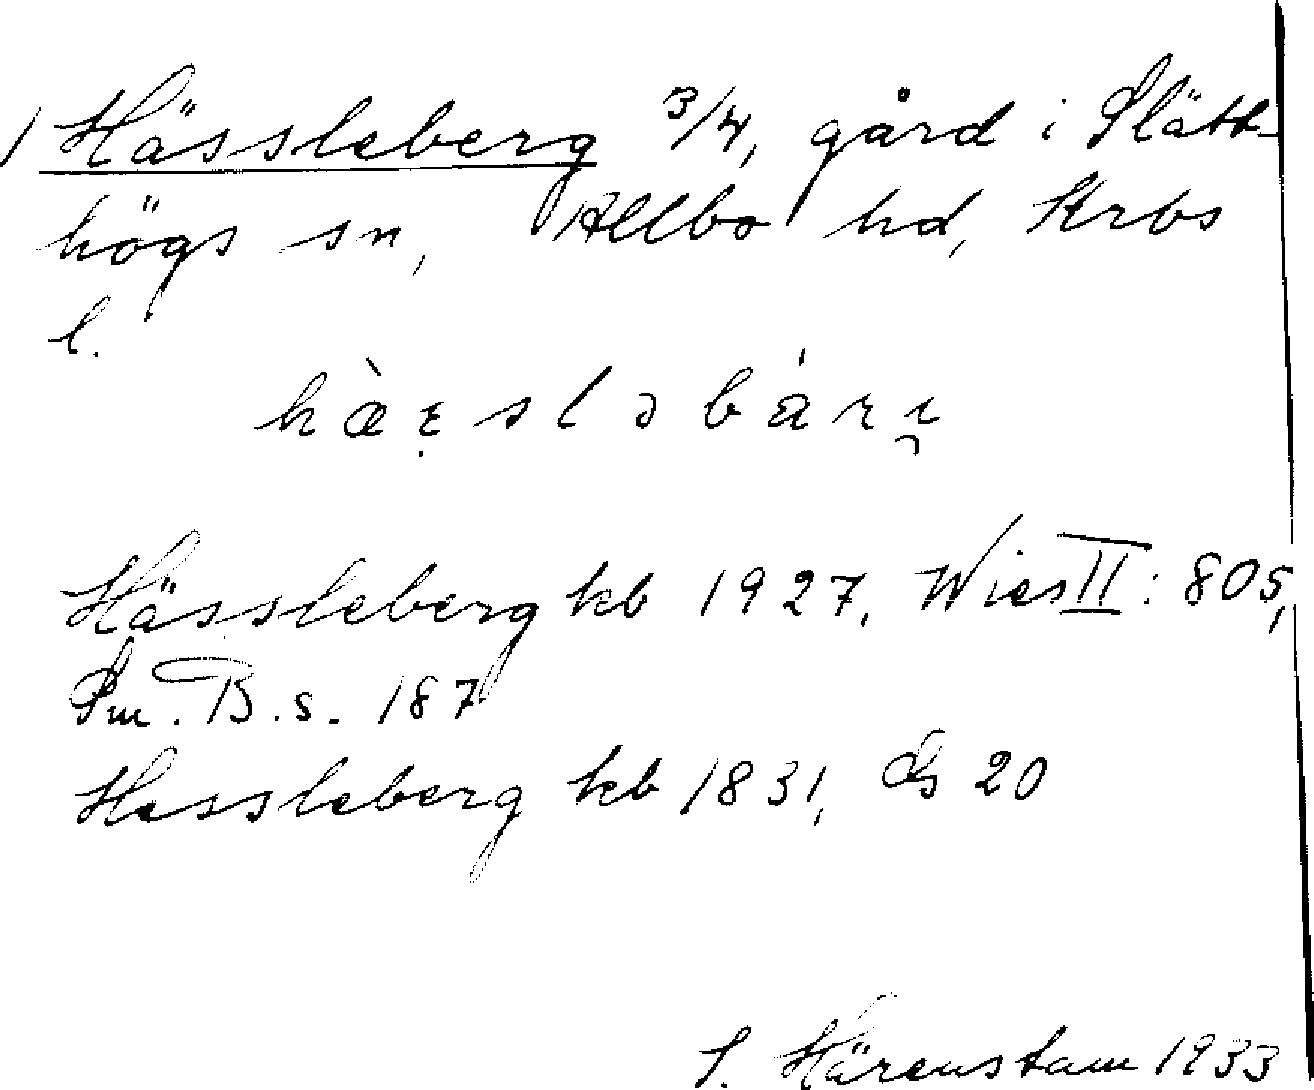 1 Hässleberg 3/4, gård i Slätt-
högs sn, Allbo hd, Krbs
l.
hæ̀ɛ̣sləbárı̯
Hässleberg kb 1927, Wies II: 805,
Sm. B. s. 187
Hessleberg kb 1831, Gs 20
S. Härenstam 1933